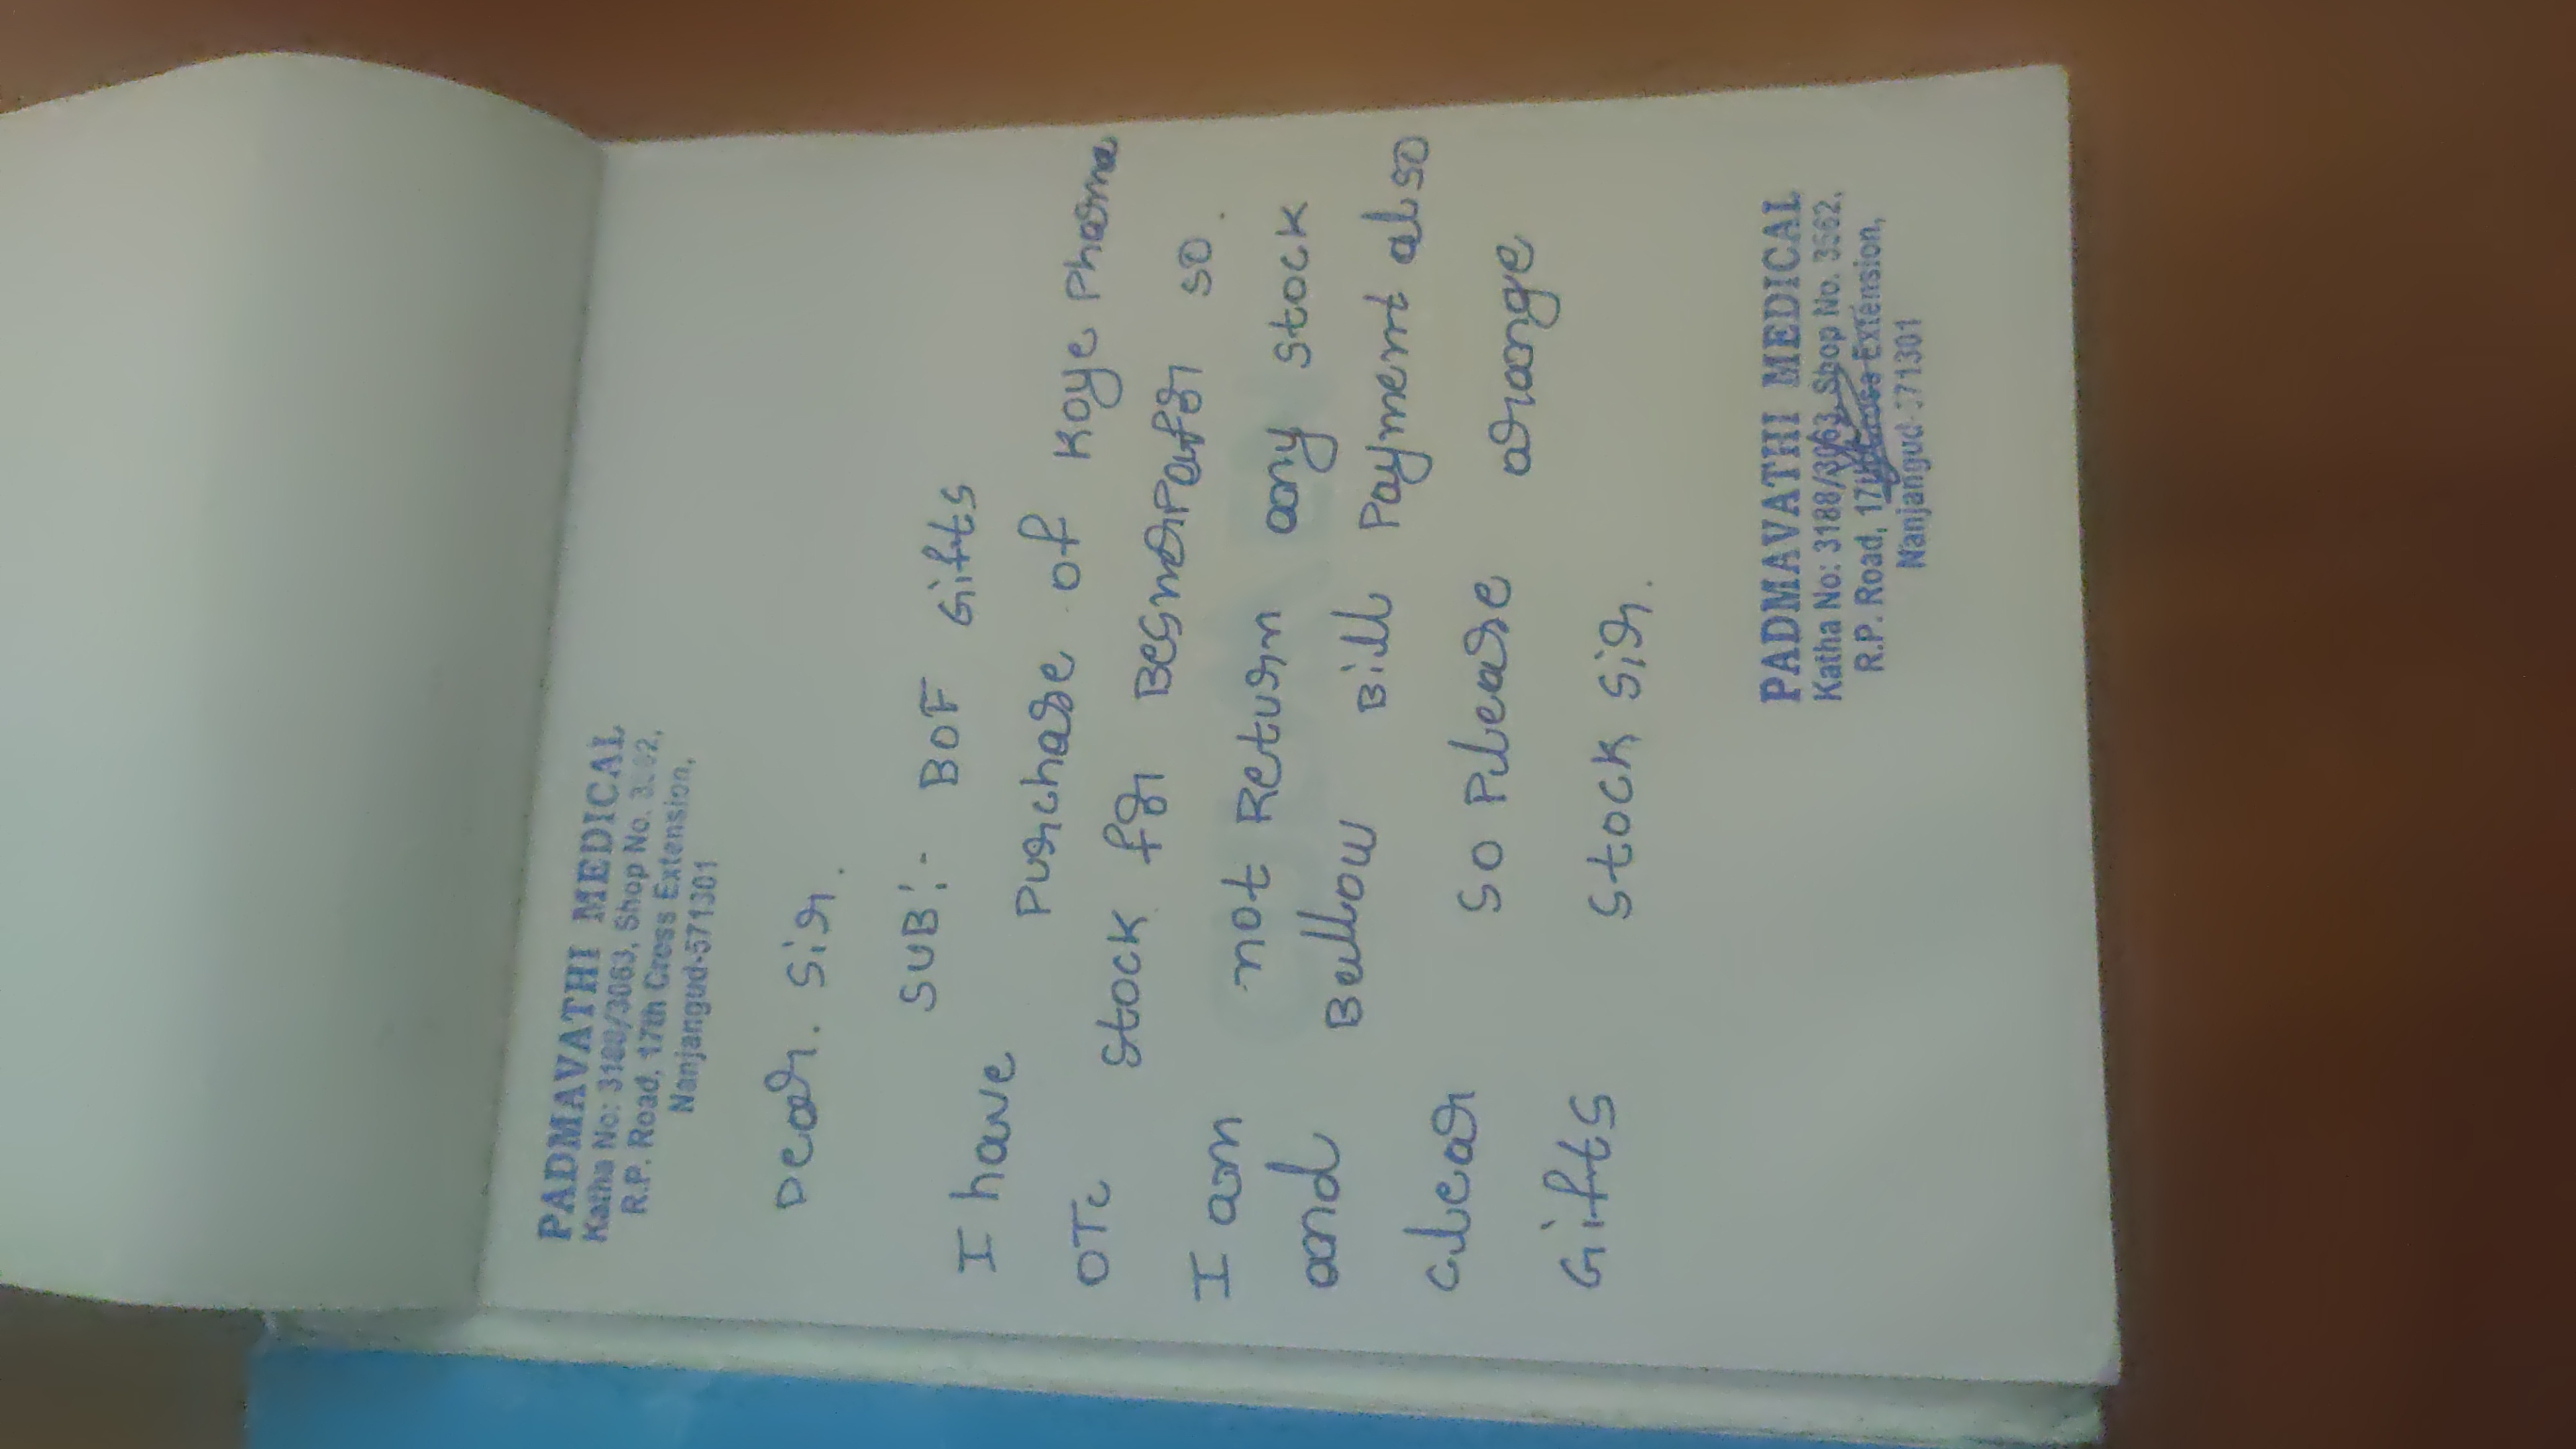 PADMAVATHI MEDICAL
Katha No: 3188/3063, Shop No. 3562,
R.P. Road, 17th Cross Extension,
Nanjangud-571301
Dear. Sir.
SUB:- BOF Gifts
I have Purchase of Koye Pharma
OTC Stock for so.
I am not Return any stock
and Bellow Bill Payment also
clear so Please arange
Gifts Stock Sir.
PADMAVATHI MEDICAL
Katha No: 3188/3063, Shop No. 3562,
R.P. Road, 17th Cross Extension,
Nanjangud-571301